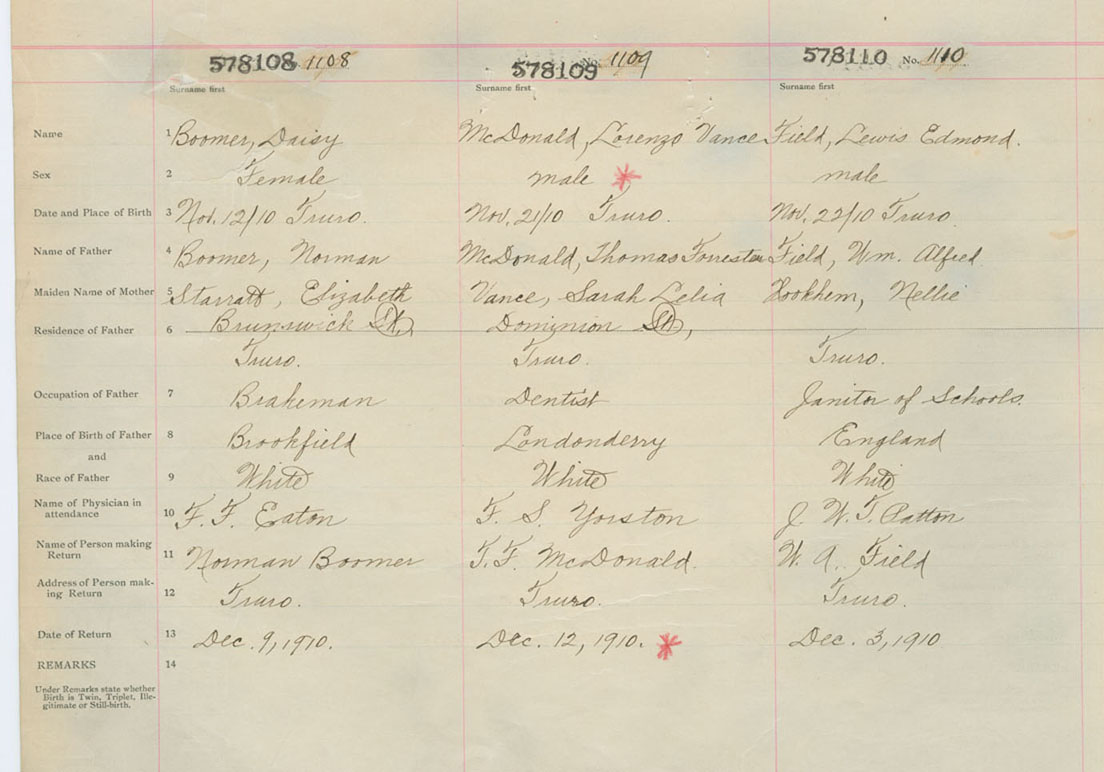 578108 1108 578109 No. 1109 578110 No. 1110
Surname first Surname first Surname first
Name 1 Boomer, Daisy McDonald, Lorenzo Vance Field, Lewis Edmond.
Sex 2 Female male male
Date and Place of Birth 3 Nov. 12/10 Truro. Nov. 21/10 Truro. Nov. 22/10 Truro
Name of Father 4 Boomer, Norman McDonald, Thomas Forrester Field, Wm. Alfred.
Maiden Name of Mother 5 Starratt, Elizabeth Vance, Sarah Lelia Hookhem, Nellie
Residence of Father 6 Brunswick St., Dominion St.,
Truro. Truro. Truro.
Occupation of Father 7 Brakeman Dentist Janitor of Schools.
Place of Birth of Father 8 Brookfield Londonderry England
and
Race of Father 9 White White White
Name of Physician in
attendance 10 F. F. Eaton F. S. Yorston J. W. T. Patton
Name of Person making
Return 11 Norman Boomer T. F. McDonald. W. A. Field
Address of Person mak-
ing Return 12 Truro. Truro. Truro.
Date of Return 13 Dec. 9, 1910. Dec. 12, 1910. Dec. 3, 1910
REMARKS 14
Under Remarks state whether
Birth is Twin, Triplet, Ille-
gitimate or Still-birth.